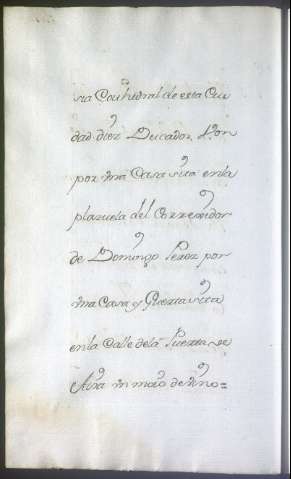 sia Cathedral de esta Ciu
dad diez Ducados, Don
por vna Casa sita en la
plazuela del Corregidor
de Domingo Perez por
vna Casa y Guerta sita
en la Calle dela Puerta de
Aira vn mrõ de vino=